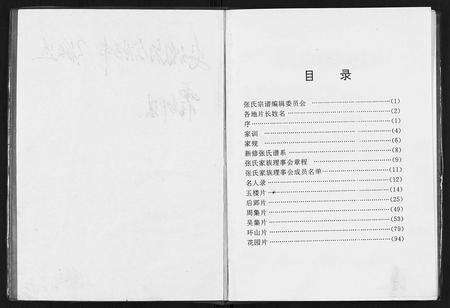 目 录
张氏宗谱编辑委员会 ……(1)
各地片长姓名 ……(2)
序 ……(1)
家训 ……(4)
家规 ……(6)
新修张氏谱系 ……(8)
张氏家族理事会章程 ……(9)
张氏家族理事会成员名单 ……(11)
名人录 ……(12)
五楼片 ……(14)
后郢片 ……(25)
周集片 ……(49)
吴集片 ……(53)
环山片 ……(79)
花园片 ……(94)